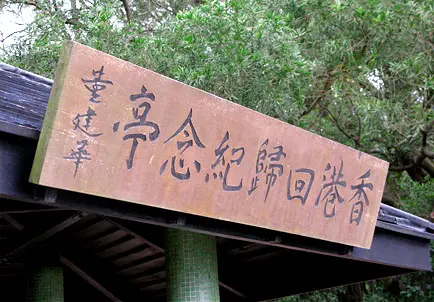 香港回歸紀念亭
董建華